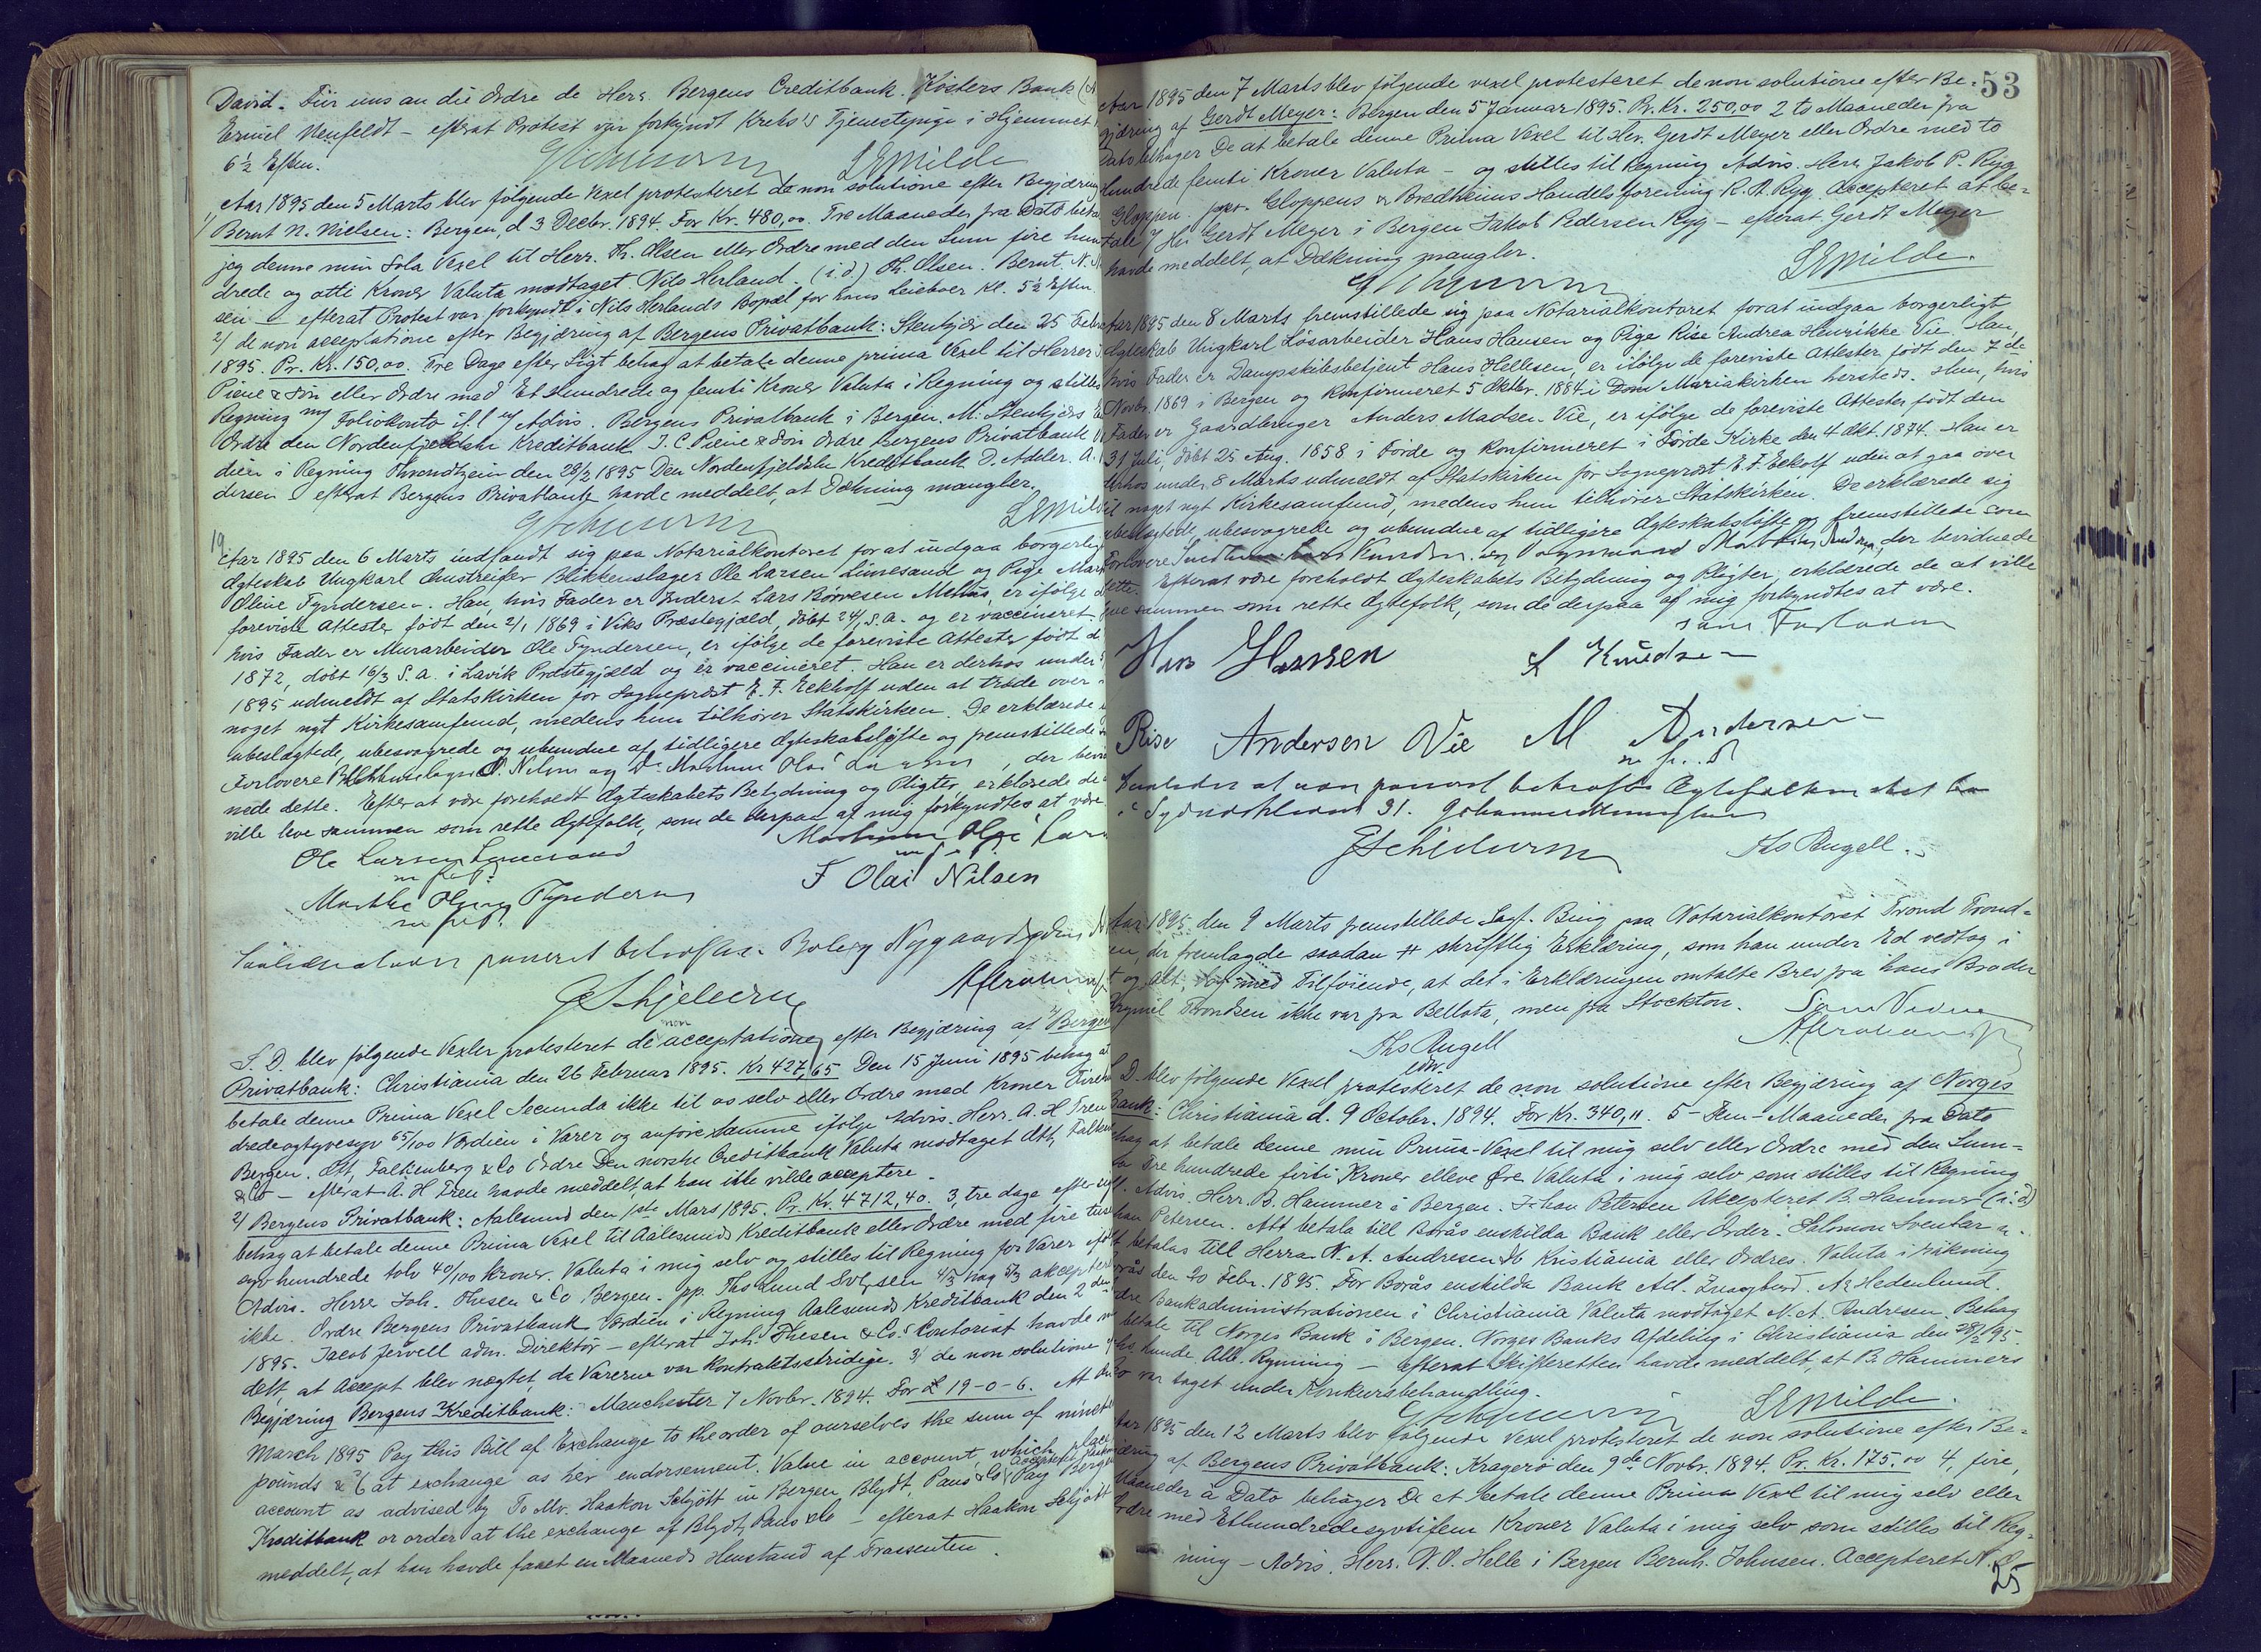 David. Für uns an die Ordre de Herr. Bergens Creditbank. Kösters Bank
Ermil Neufeldt – efterat Protest var forkyndt Krebs's Tjenestepige i Hjemmet
6½ Eftm.
LEMilde
Aar 1895 den 5 Marts blev følgende Vexel protesteret de non solutione efter Begjæring
Bernt N. Nielsen: Bergen, d 3 Decbr. 1894. For Kr. 480,00. Tre Maaneder fra Dato betaler
jeg denne min Sola Vexel til Herr. Th. Olsen eller Ordre med den Sum fire hun
drede og otti Kroner Valuta modtaget. Nils Herland. (i.d.) Th. Olsen. Bernt. N. N
sen – efterat Protest var forkyndt i Nils Herlands Bopæl for hans Leieboer Kl. 5½ Eftm.
2) de non acceptatione efter Begjæring af Bergens Privatbank: Stenkjær den 25 Febr
1895. Pr. Kr. 150,00. Tre Dage efter Sigt behag at betale denne prima Vexel til Herrer
Piene & Søn eller Ordre med Et Hundrede og femti Kroner Valuta i Regning og stilles
Regning my Foliokonto if. Advis. Bergens Privatbank i Bergen. M. Stenkjers
Ordre den Nordenfjeldske Kreditbank I. C. Piene & Søn Ordre Bergens Privatbank
dien i Regning Throndhjem den 28/2 1895 Den Nordenfjeldske Kreditbank D. Adeler. A.
dersen – efterat Bergens Privatbank havde meddelt, at Dækning mangler.
LEMilde
19
Aar 1895 den 6 Marts indfandt sig paa Notarialkontoret forat indgaa borgerlig
Ægteskab Ungkarl Omstreifer Blikkenslager Ole Larsen Limesand og Pige Mar
Oline Tyndersen. Han, hvis Fader er Inderst Lars Børresen Melhus, er ifølge d
foreviste Attester født den 2/1 1869 i Viks Præstegjæld, døbt 24/1 s.a. og er vaccineret.
hvis Fader er Murarbeider Ole Tyndersen, er ifølge de foreviste Attester født d
1872, døbt 16/3 s.a. i Lavik Præstegjæld og er vaccineret. Han er derhos under
1895 udmeldt af Statskirken for Sogneprest E. F. Eckhoff uden at træde over
noget nyt Kirkesamfund, medens hun tilhører Statskirken. De erklærede
ubeslægtede, ubesvogrede og ubundne af tidligere Ægteskabsløfte og fremstillede
Forlovere Blikkenslager O. Nilsen og Do Olai Larsen, der bevid
nede dette. Efter at være foreholdt Ægteskabets Betydning og Pligter, erklærede de
ville leve sammen som rette Ægtefolk, som de derpaa af mig forkyndtes at være
Olai Lars
Ole Larsen Limesand
m. p. P.
F Olai Nilsen
Marthe Oline Tyndersen
m. p. P.
passeret bekræftes. Bolig Nygaards
S. D. blev følgende Vexler protesteret de non acceptatione, efter Begjæring af 1) Bergens
Privatbank: Christiania den 26 Februar 1895. Kr 427,65 Den 15 Juni 1895 behag at
betale denne Prima Vexel Secunda ikke til os selv eller Ordre med Kroner Firehun
dredeogtyvesyv 65/100 Værdien i Varer og anføre samme ifølge Advis. Herr. A. H Treu
Bergen. Ott, Falkenberg & Co Ordre Den norske Creditbank Valuta modtaget Ott, Falken
& Co – efterat A. H Treu havde meddelt, at han ikke vilde acceptere.
2) Bergens Privatbank: Aalesund den 1ste Mars 1895. Pr. Kr. 4712,40. 3, tre dage efter
behag at betale denne Prima Vexel til Aalesunds Kreditbank eller Ordre med fire tusen
syv hundrede tolv 40/100 Kroner. Valuta i mig selv og stilles til Regning for Varer ifølge
Advis. Herre Joh. Thesen & Co Bergen. pp. Tho Lund Solvsen 4/3 nag 5/3 akcepteres
ikke. Ordre Bergens Privatbank Værdien i Regning Aalesunds Kreditbank den 2den
1895. Jacob Jervell adm. Direktør – efterat Joh. Thesen & Co.s Contorist havde m
delt, at Accept blev nægtet, da Varerne var Kontraktsstridige. 3) de non solutione
Begjæring Bergens Kreditbank: Manchester 7 Novbr. 1894. For £ 19-0-6. At
March 1895 Pay this Bill of Exchange to the order of ourselves the sum of ninet
pounds & 6 at exchange as per endorsement. Value in account, which place
account as advised by To Mr. Haakon Schjött in Bergen Blydt, Paus & Co Pay Bergens
Kreditbank or order at the exchange of Blydt, Paus & Co – efterat Haakon Schjött
meddelt, at han havde faaet en Maaneds Henstand af Trassenten.
53
Aar 1895 den 7 Marts blev følgende vexel protesteret de non solutione efter Be-
gjæring af Gerdt Meyer: Bergen den 5 Januar 1895. Pr. Kr. 250,00 2 to Maaneder fra
Dato behager De at betale denne Prima Vexel til Her. Gerdt Meyer eller Ordre med to
Hundrede femti Kroner Valuta – og stilles til Regning Advis. Herr Jakob P. Rygg
Gloppen. per. Gloppens & Bredheims Handelsforening R. A. Ryg. Accepteret at be-
tale Her Gerdt Meyer i Bergen Jakob Pedersen Ryg – efterat Gerdt Meyer
havde meddelt, at Dækning mangler.
LEMilde.
Aar 1895 den 8 Marts fremstillede sig paa Notarialkontoret forat indgaa borgerligt
Ægteskab Ungkarl Løsarbeider Hans Hansen og Pige Rise Andrea Henrikke Vie. Han,
hvis Fader er Dampskibsbetjent Hans Hellesen, er ifølge de foreviste Attester født den 7de
Novbr. 1869 i Bergen og Konfirmeret 5 Oktbr. 1884 i Mariakirken hersteds. Hun, hvis
Fader er Gaardbruger Anders Madsen Vie, er ifølge de foreviste Attester født den
31 Juli, døbt 25 Aug. 1858 i Førde og konfirmeret i Førde Kirke den 4 Okt. 1874. Han er
derhos under 8 Marts udmeldt af Statskirken for Sogneprest E. F. Eckoff uden at gaa over
til noget nyt Kirkesamfund, medens hun tilhører Statskirken. De erklærede sig
ubeslægtede ubesvogrede og ubundne af tidligere Ægteskabsløfte og fremstillede som
Forlovere Knudsen og der bevidnede
dette. Efterat være foreholdt Ægteskabets Betydning og Pligter, erklærede de at ville
leve sammen som rette Ægtefolk, som de derpaa af mig forkyndtes at være.
som Forlovere
Hans Hansen
A Knudsen
Rise Andersen Vie M Andersen
m. p. P.
at passeret bekræftes Ægtefolkene
i 31.
Ths Angell.
Aar 1895 den 9 Marts fremstillede Sagf. Bing paa Notarialkontoret Trond Trond-
sen, der fremlagde saadan # skriftlig Erklæring, som han under Ed vedtog i
Et og alt, med Tilføiende, at det i Erklæringen omtalte Brev fra hans Broder
Brynjel Trondsen ikke var fra Bellota, men fra Stockton.
Som Vidne
Ths Angell
edv.
S. D. blev følgende Vexel protesteret de non solutione efter Begjæring af Norges
Bank: Christiania d. 9 October. 1894. For Kr. 340,11. 5 – Fem – Maaneder fra Dato
behag at betale denne min Prima-Vexel til mig selv eller Ordre med den Sum
Tre hundrede forti Kroner elleve Øre Valuta i mig selv som stilles til Regning
Advis. Herr. B. Hammer i Bergen. Johan Petersen Akcepteret B. Hammer (i. d)
Johan Petersen. Att betala till Borås enskilda Bank eller Order. Salomon
betalas till Herra N. A. Andresen & Co Kristiania eller Ordres. Valuta i räkning
Borås den 20 Febr. 1895. For Borås enskilda Bank Ad. A. Hedenlund.
Ordre Bankadministrationen i Christiania Valuta modtaget N. A. Andresen Behag
betale til Norges Bank i Bergen. Norges Banks Afdeling i Christiania den 28/2 95.
Alb. Rynning – efterat Skifteretten havde meddelt, at B. Hammers
Bo var taget under Konkursbehandling.
LEMilde.
Aar 1895 den 12 Marts blev følgende Vexel protesteret de non solutione efter Be-
gjæring af Bergens Privatbank: Kragerø den 9de Novbr. 1894. Pr. Kr. 175,00 4, fire,
Maaneder à Dato behager De at betale denne Prima Vexel til mig selv eller
Ordre med Ethundredesyvtifem Kroner Valuta i mig selv som stilles til Reg-
ning – Advis. Herr. N. O. Helle i Bergen Bernh. Johnsen. Accepteret N. O.
25